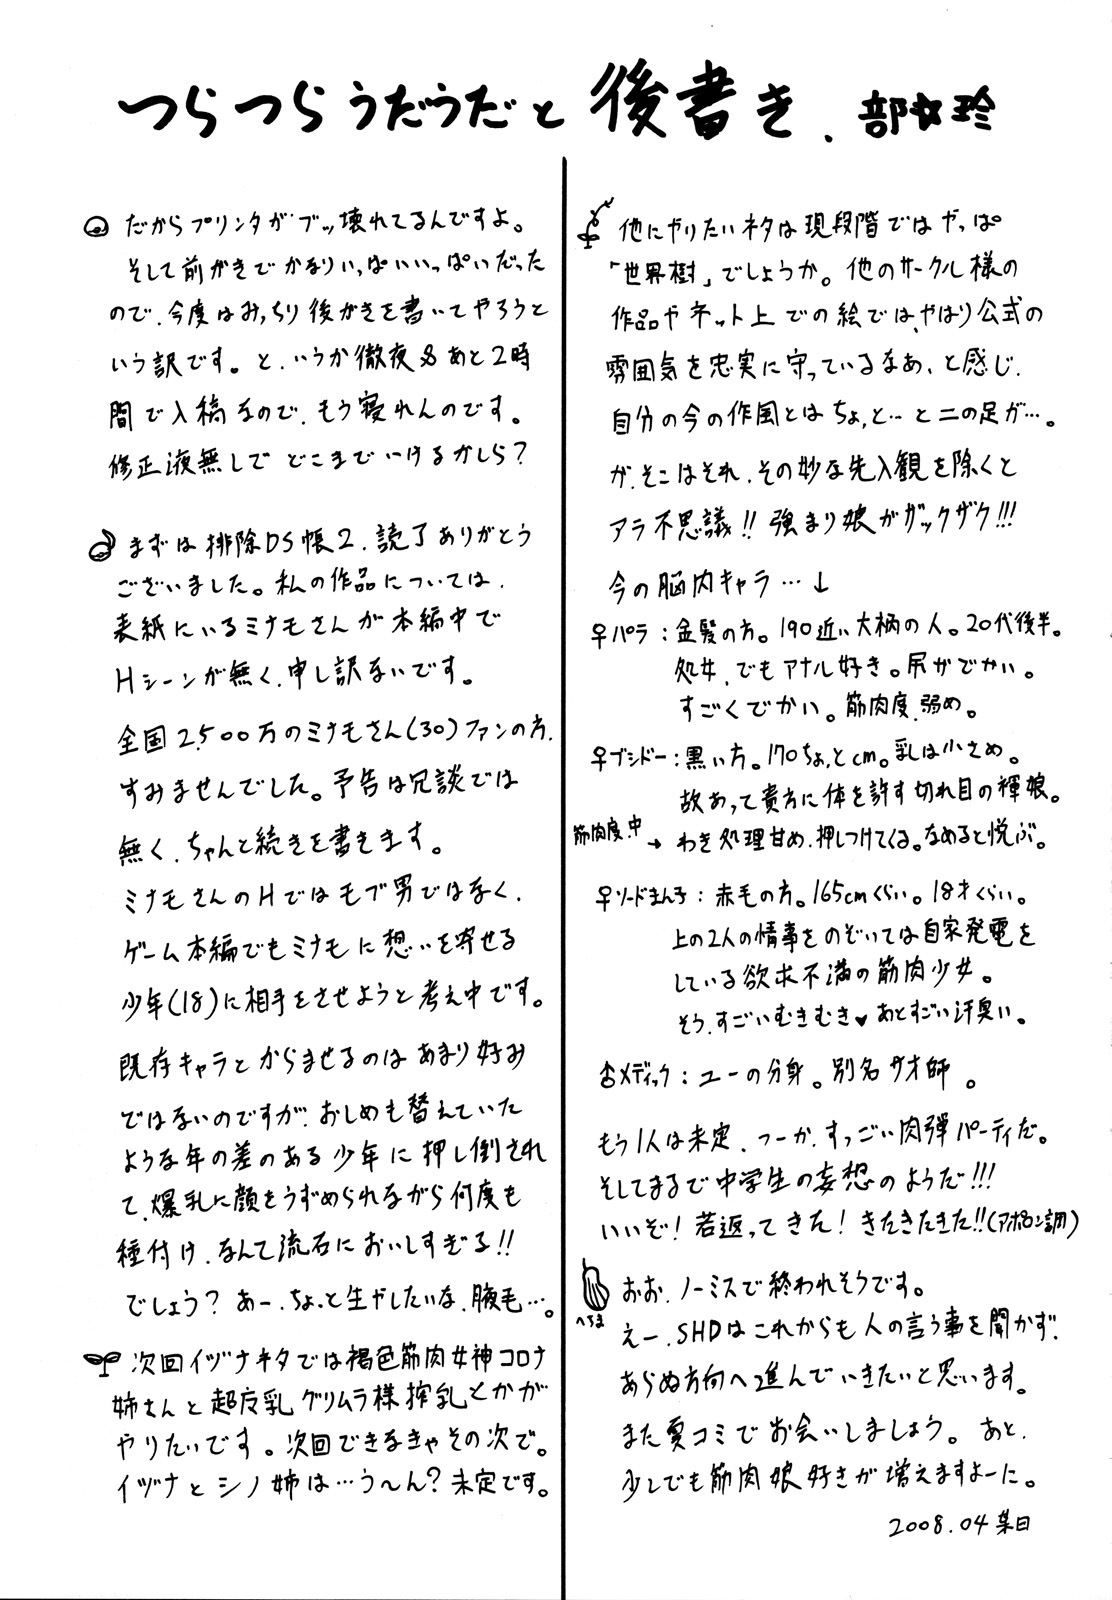 つらつらうだうだと後書き.部☆玲
だからプリンタがブッ壊れてるんですよ。
そして前がきでかなりいっぱいいっぱいだった
ので、今度はみっちり後がきを書いてやろうと
いう訳です。と、いうか徹夜&あと2時
間で入稿なので、もう寝れんのです。
修正液無しでどこまでいけるかしら?
まずは排除DS帳2、読了ありがとう
ございました。私の作品については、
表紙にいるミナモさんが本編中で
Hシーンが無く、申し訳ないです。
全国2,500万のミナモさん(30)ファンの方、
すみませんでした。予告は冗談では
無く、ちゃんと続きを書きます。
ミナモさんのHではモブ男ではなく、
ゲーム本編でもミナモに想いを寄せる
少年(18)に相手をさせようと考え中です。
既存キャラとからませるのはあまり好み
ではないのですが、おしめも替えていた
ような年の差のある少年に押し倒され
て、爆乳に顔をうずめられながら何度も
種付け、なんて流石においしすぎる!!
でしょう?あー、ちょっと生やしたいな、腋毛…。
次回イヅナネタでは褐色筋肉女神コロナ
姉さんと超反乳グリムラ様搾乳とかが
やりたいです。次回できなきゃその次で。
イヅナとシノ姉は…う〜ん?未定です。
他にやりたいネタは現段階ではやっぱ
「世界樹」でしょうか。他のサークル様の
作品やネット上での絵では、やはり公式の
雰囲気を忠実に守っているなあ、と感じ、
自分の今の作風とはちょっと…と二の足が…。
が、そこはそれ、その妙な先入観を除くと
アラ不思議!!強まり娘がザックザク!!!
今の脳内キャラ…↓
♀パラ:金髪の方。190近い大柄の人。20代後半。
処女、でもアナル好き。尻がでかい。
すごくでかい。筋肉度、弱め。
♀ブシドー:黒い方。170ちょっとcm。乳は小さめ。
故あって貴方に体を許す切れ目の褌娘。
筋肉度、中→わき処理甘め、押しつけてくる。なめると悦ぶ。
♀ソードまん子:赤毛の方。165cmくらい。18才くらい。
上の2人の情事をのぞいては自家発電を
している欲求不満の筋肉少女。
そう、すごいむきむき♥あとすごい汗臭い。
♂メディック:ユーの分身。別名サオ師。
もう1人は未定、つーか、すっごい肉弾パーティだ。
そしてまるで中学生の妄想のようだ!!!
いいぞ!若返ってきた!きたきたきた!!(アポロン調)
へちま
おお、ノーミスで終われそうです。
えー、SHDはこれからも人の言う事を聞かず、
あらぬ方向へ進んでいきたいと思います。
また夏コミでお会いしましょう。あと、
少しでも筋肉娘好きが増えますよーに。
2008.04某日